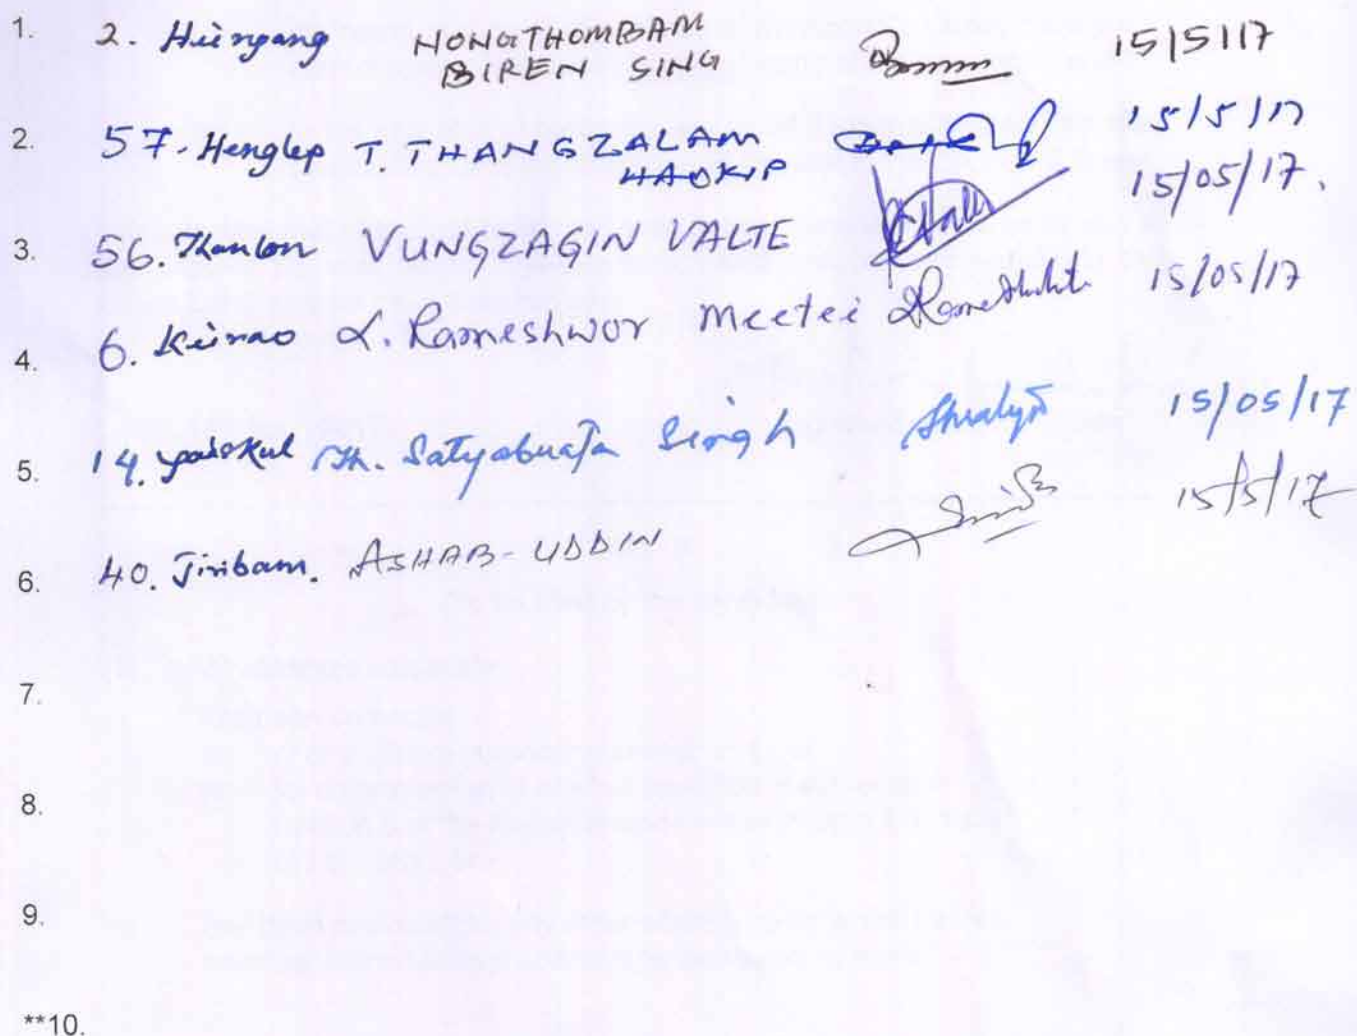 1. 2. Hiingang NONGTHOMBAM
BIREN SING 15/5/17
2. 57. Henglep T. THANGZALAM
HAOKIP 15/5/17
15/05/17.
3. 56. Thanlon VUNGZAGIN VALTE
4. 6. Keirao L. Rameshwor Meetei 15/05/17
5. 14. Yaiskul Th. Satyabrata Singh 15/05/17
6. 40. Jiribam. ASHAB-UDDIN 15/5/17
7.
8.
9.
**10.